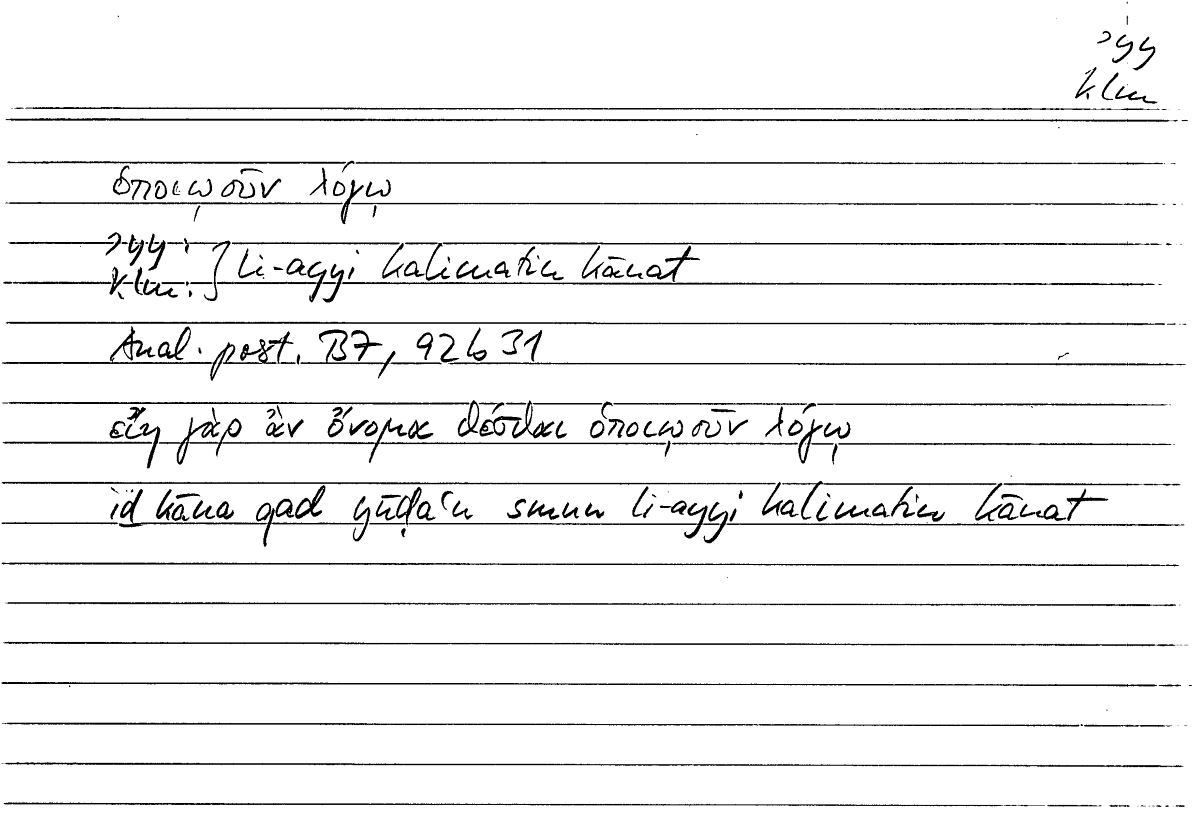 ʾyy
klm
ὁποιῳοῦν λόγῳ
ʾyy:
klm: } li-ayyi kalimatin kānat
Anal. post. B7, 92b31
εἴη γὰρ ἂν ὄνομα θέσθαι ὁποιῳοῦν λόγῳ
iḏ kāna qad yūḍaʿu smun li-ayyi kalimatin kānat